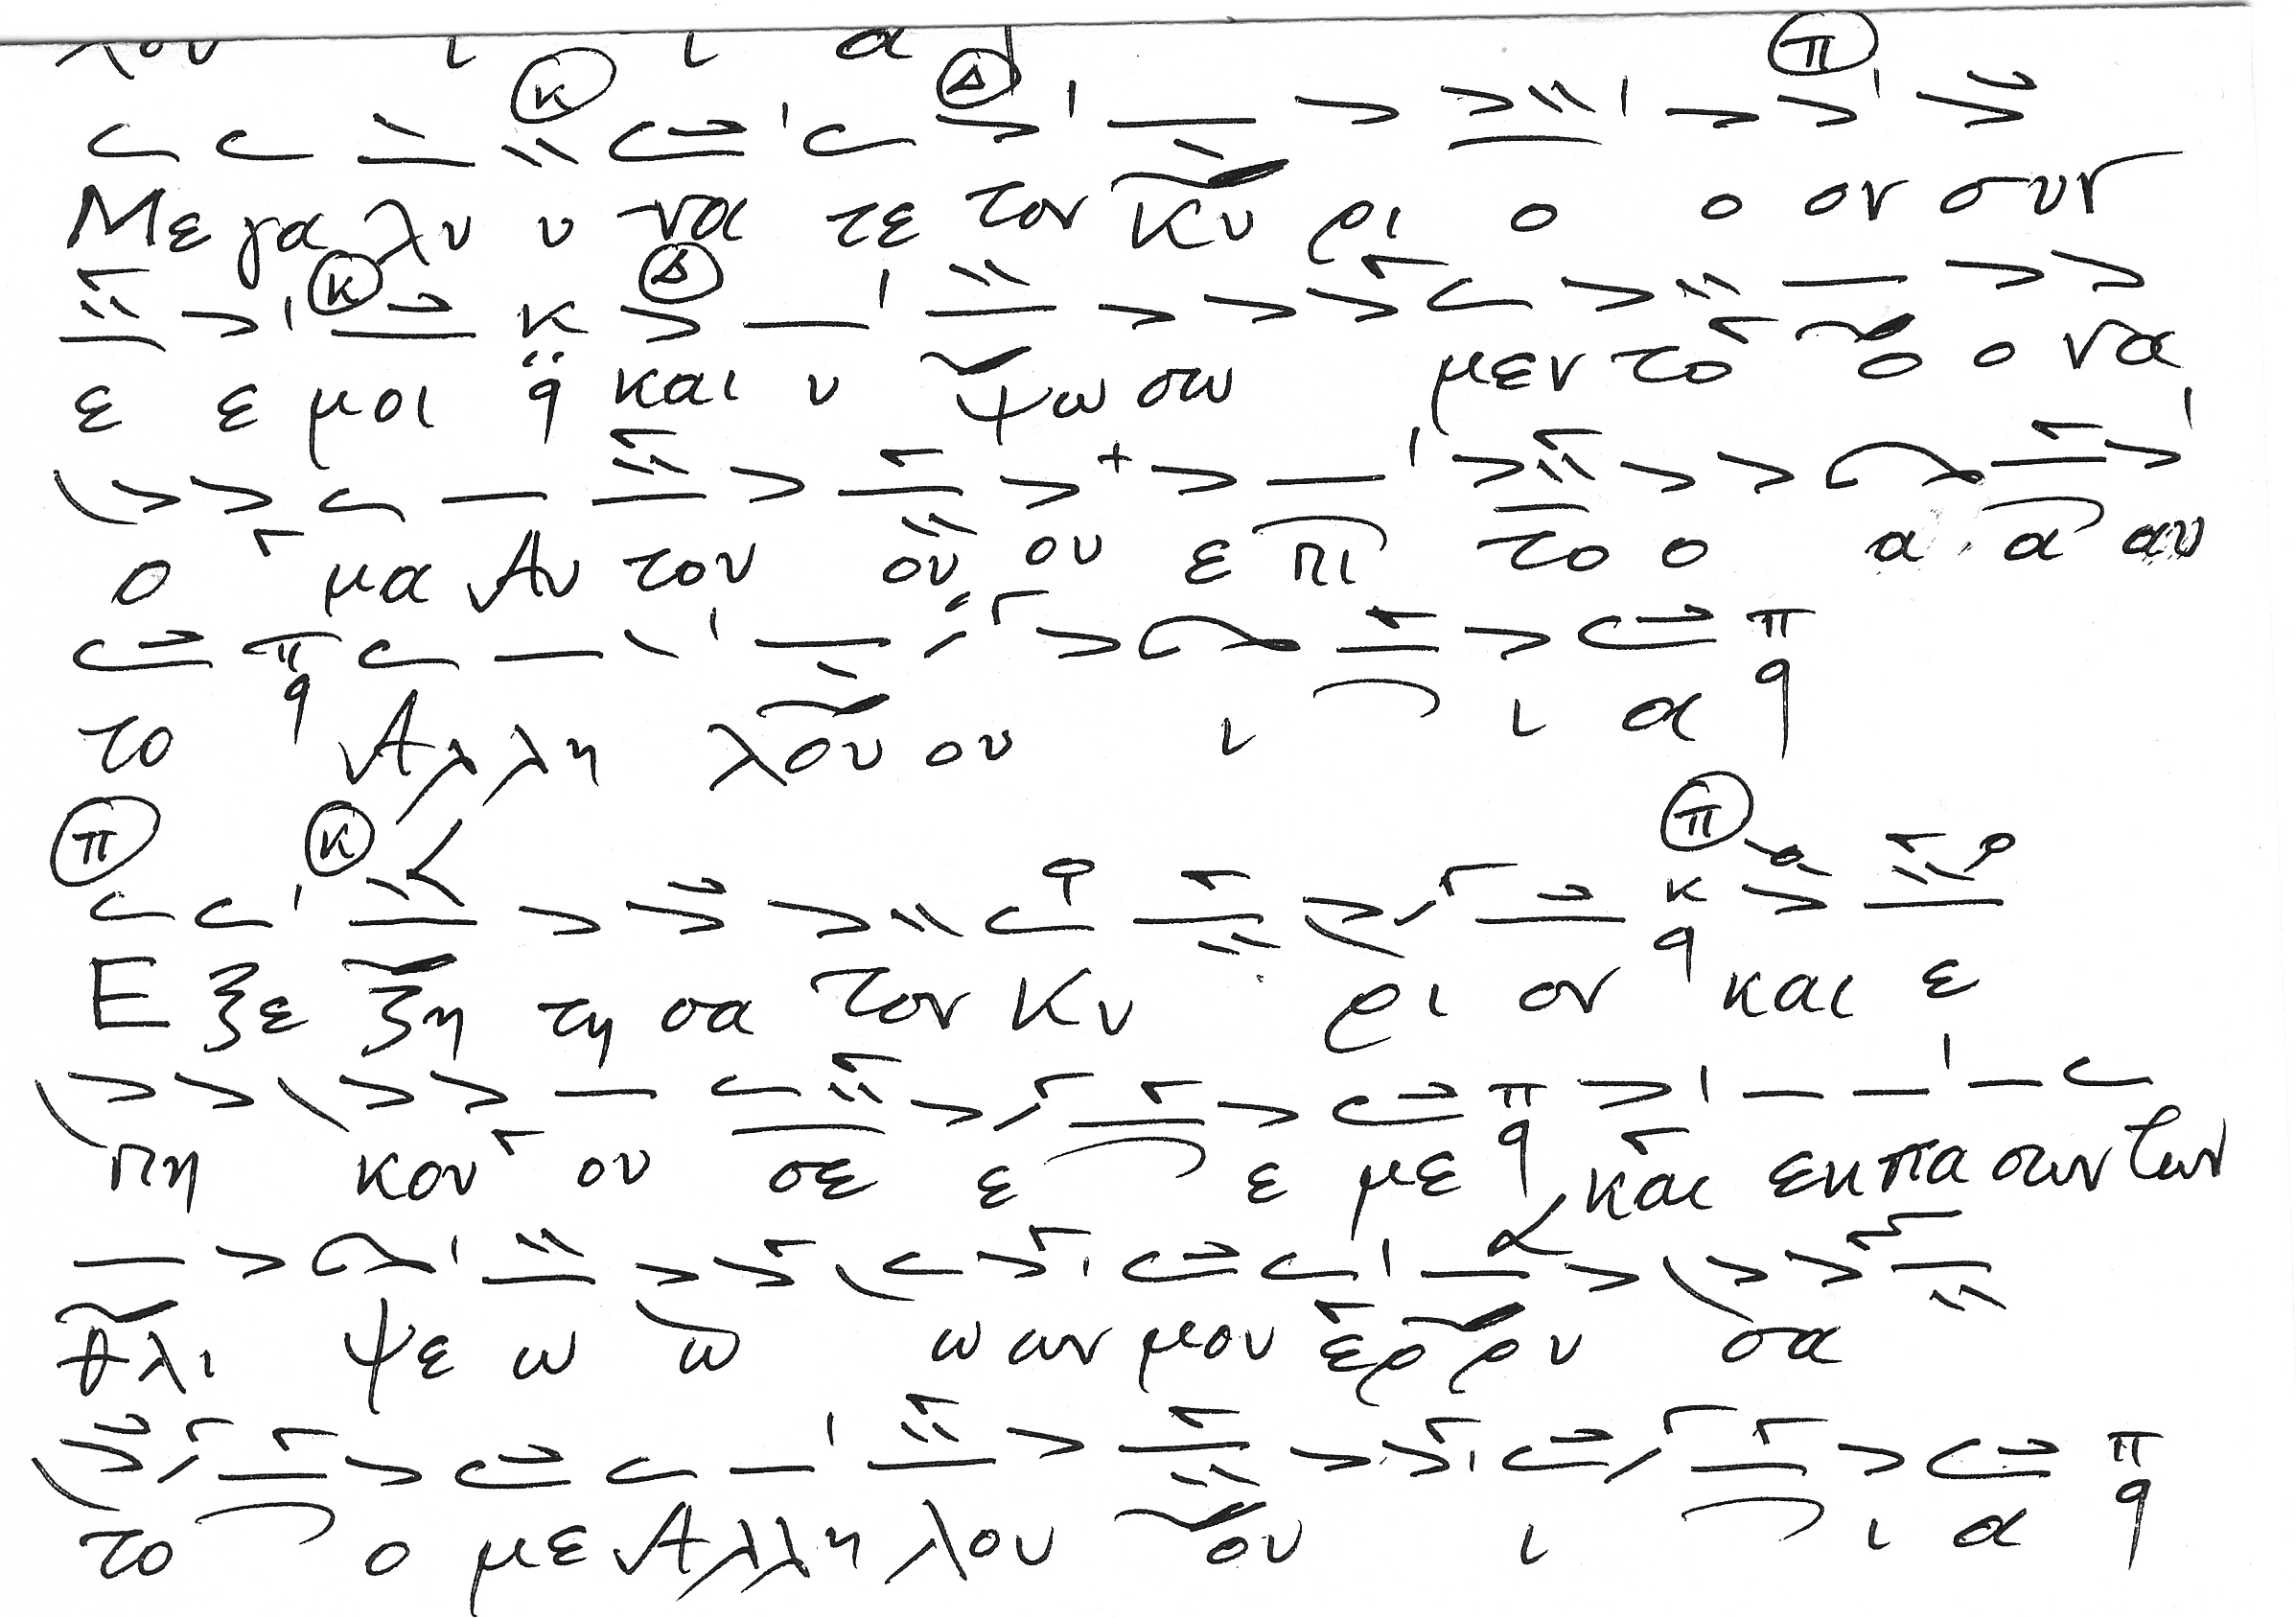 λου ι ι α
Με γα λυ υ να τε τον Κυ ρι ο ο ον συν
ε ε μοι και υ ψω σω μεν το ο ο να
ο μα Αυ του ου ου ε πι το ο α α αυ
το Αλ λη λου ου ι ι α
Ε ξε ζη τη σα τον Κυ ρι ον και ε
πη κου ου σε ε ε με και εκ πα σων των
θλι ψε ω ω ω ων μου ερ ρυ σα
το ο με Αλ λη λου ου ι ι α